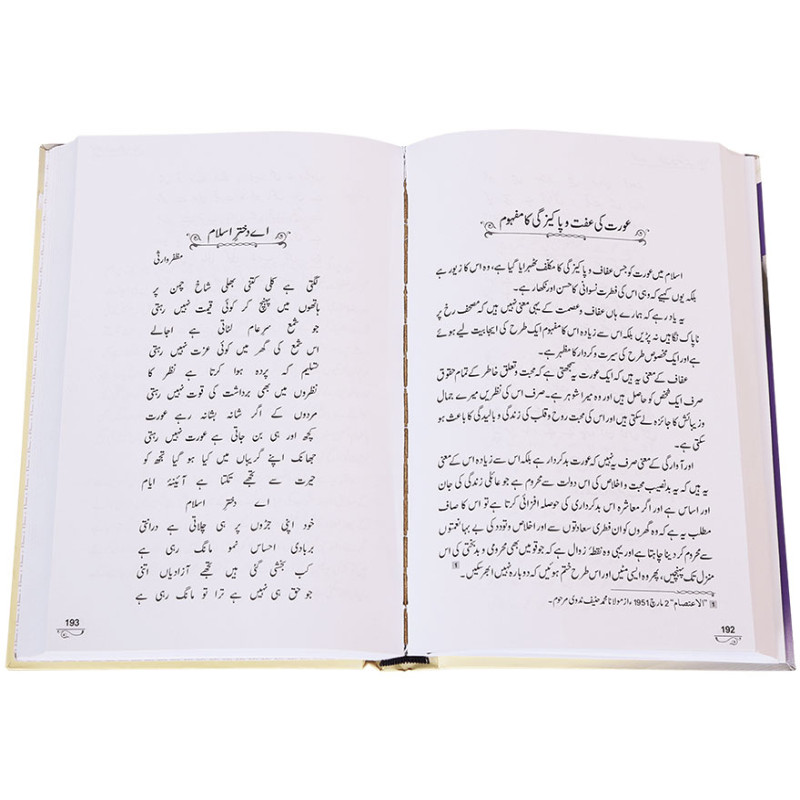 عورت کی عفت و پاکیزگی کا مفہوم
اسلام میں عورت کو جس عفاف و پاکیزگی کا مکلف ٹھہرایا گیا ہے، وہ اس کا زیور ہے
بلکہ یوں کہیے کہ وہی اس کی فطرت نسوانی کا حسن اور نکھار ہے۔
یہ یاد رہے کہ ہمارے ہاں عفاف و عصمت کے یہی معنی نہیں ہیں کہ مصحف رخ پر
ناپاک نگاہیں نہ پڑیں بلکہ اس سے زیادہ اس کا مفہوم ایک طرح کی ایجابیت لیے ہوئے
ہے اور ایک مخصوص طرح کی سیرت و کردار کا مظہر ہے۔
عفاف کے معنی یہ ہیں کہ ایک عورت یہ سمجھتی ہے کہ محبت و تعلق خاطر کے تمام حقوق
صرف ایک شخص کو حاصل ہیں اور وہ میرا شوہر ہے۔ صرف اس کی نظریں میرے جمال
و زیبائش کا جائزہ لے سکتی ہیں اور اس کی محبت روح و قلب کی زندگی و بالیدگی کا باعث ہو
سکتی ہے۔
اور آوارگی کے معنی صرف یہ نہیں کہ عورت بدکردار ہے بلکہ اس سے زیادہ اس کے معنی
یہ ہیں کہ یہ بدنصیب محبت و اخلاص کی اس دولت سے محروم ہے جو عائلی زندگی کی جان
اور اساس ہے اور اگر معاشرہ اس بدکرداری کی حوصلہ افزائی کرتا ہے تو اس کا صاف
مطلب یہ ہے کہ وہ گھروں کو ان فطری سعادتوں سے اور اخلاص و تودد کی بے بہا نعمتوں
سے محروم کر دینا چاہتا ہے اور یہی وہ نقطۂ زوال ہے کہ جو قومیں بھی محرومی و بدبختی کی اس
منزل تک پہنچیں، پھر وہ ایسی مٹیں اور اس طرح ختم ہوئیں کہ دوبارہ نہیں ابھر سکیں۔ 1
1 "الاعتصام" 2 مارچ 1951ء از مولانا محمد حنیف ندوی مرحوم۔
192
اے دختر اسلام
مظفر وارثی
لگتی ہے کلی کتنی بھلی شاخ چمن پر
ہاتھوں میں پہنچ کر کوئی قیمت نہیں رہتی
جو شمع سرعام لٹاتی ہے اجالے
اس شمع کی گھر میں کوئی عزت نہیں رہتی
تسلیم کہ پردہ ہوا کرتا ہے نظر کا
نظروں میں بھی برداشت کی قوت نہیں رہتی
مردوں کے اگر شانہ بشانہ رہے عورت
کچھ اور ہی بن جاتی ہے عورت نہیں رہتی
جھانک اپنے گریباں میں کیا ہو گیا تجھ کو
حیرت سے تجھے تکتا ہے آئینۂ ایام
اے دختر اسلام
خود اپنی جڑوں پر ہی چلاتی ہے درانتی
بربادی احساس نمو مانگ رہی ہے
کب بخشی گئی ہیں تجھے آزادیاں اتنی
جو حق ہی نہیں ہے ترا تو مانگ رہی ہے
193